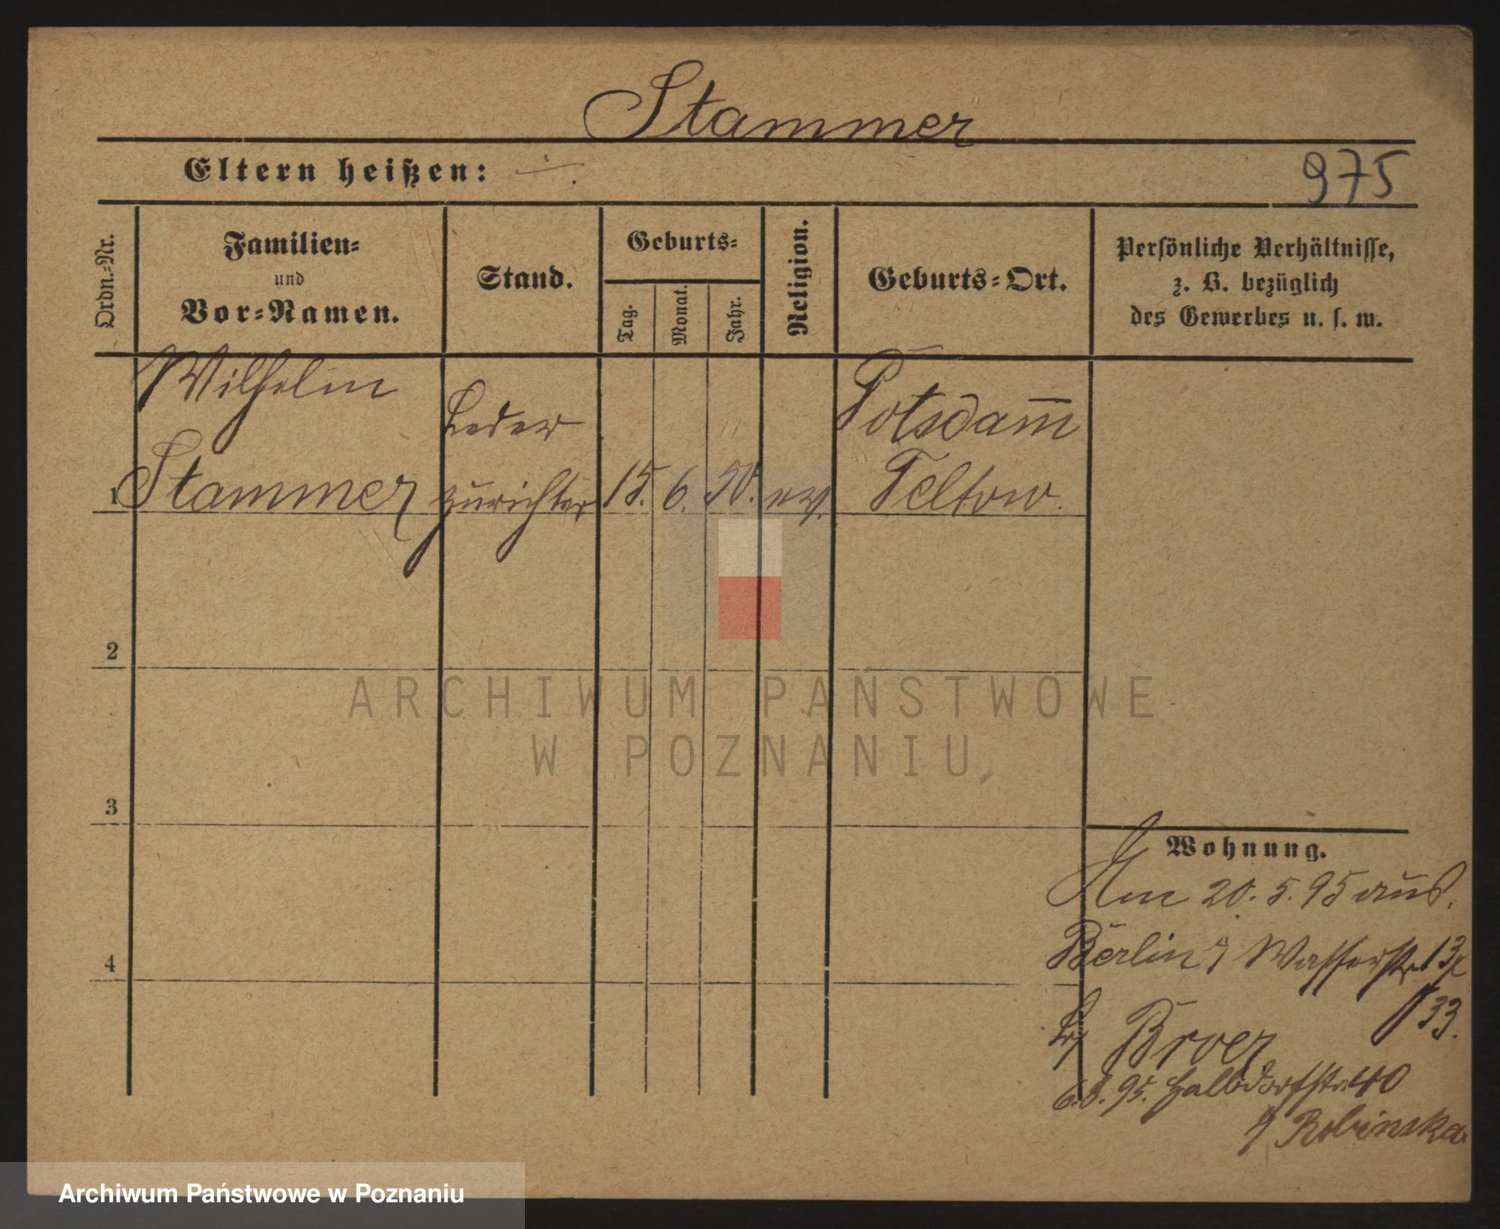 Stammer
Eltern heißen: ÷.
975
Ordn.-Nr.
Familien-
und
Vor-Namen.
Stand.
Geburts-
Tag.
Monat.
Jahr.
Religion.
Geburts-Ort.
Persönliche Verhältnisse,
z. B. bezüglich
des Gewerbes u. s. w.
Wilhelm
Stammer
Leder
zurichter
15. 6. 50. ev.
Potsdam
Teltow.
1
2
3
4
Wohnung.
Am 20. 5. 95 aus
Berlin Wasserstr 13
33.
Broer
6.8.95. Halbdorfstr 40
Robinska
ARCHIWUM PAŃSTWOWE
W POZNANIU
Archiwum Państwowe w Poznaniu